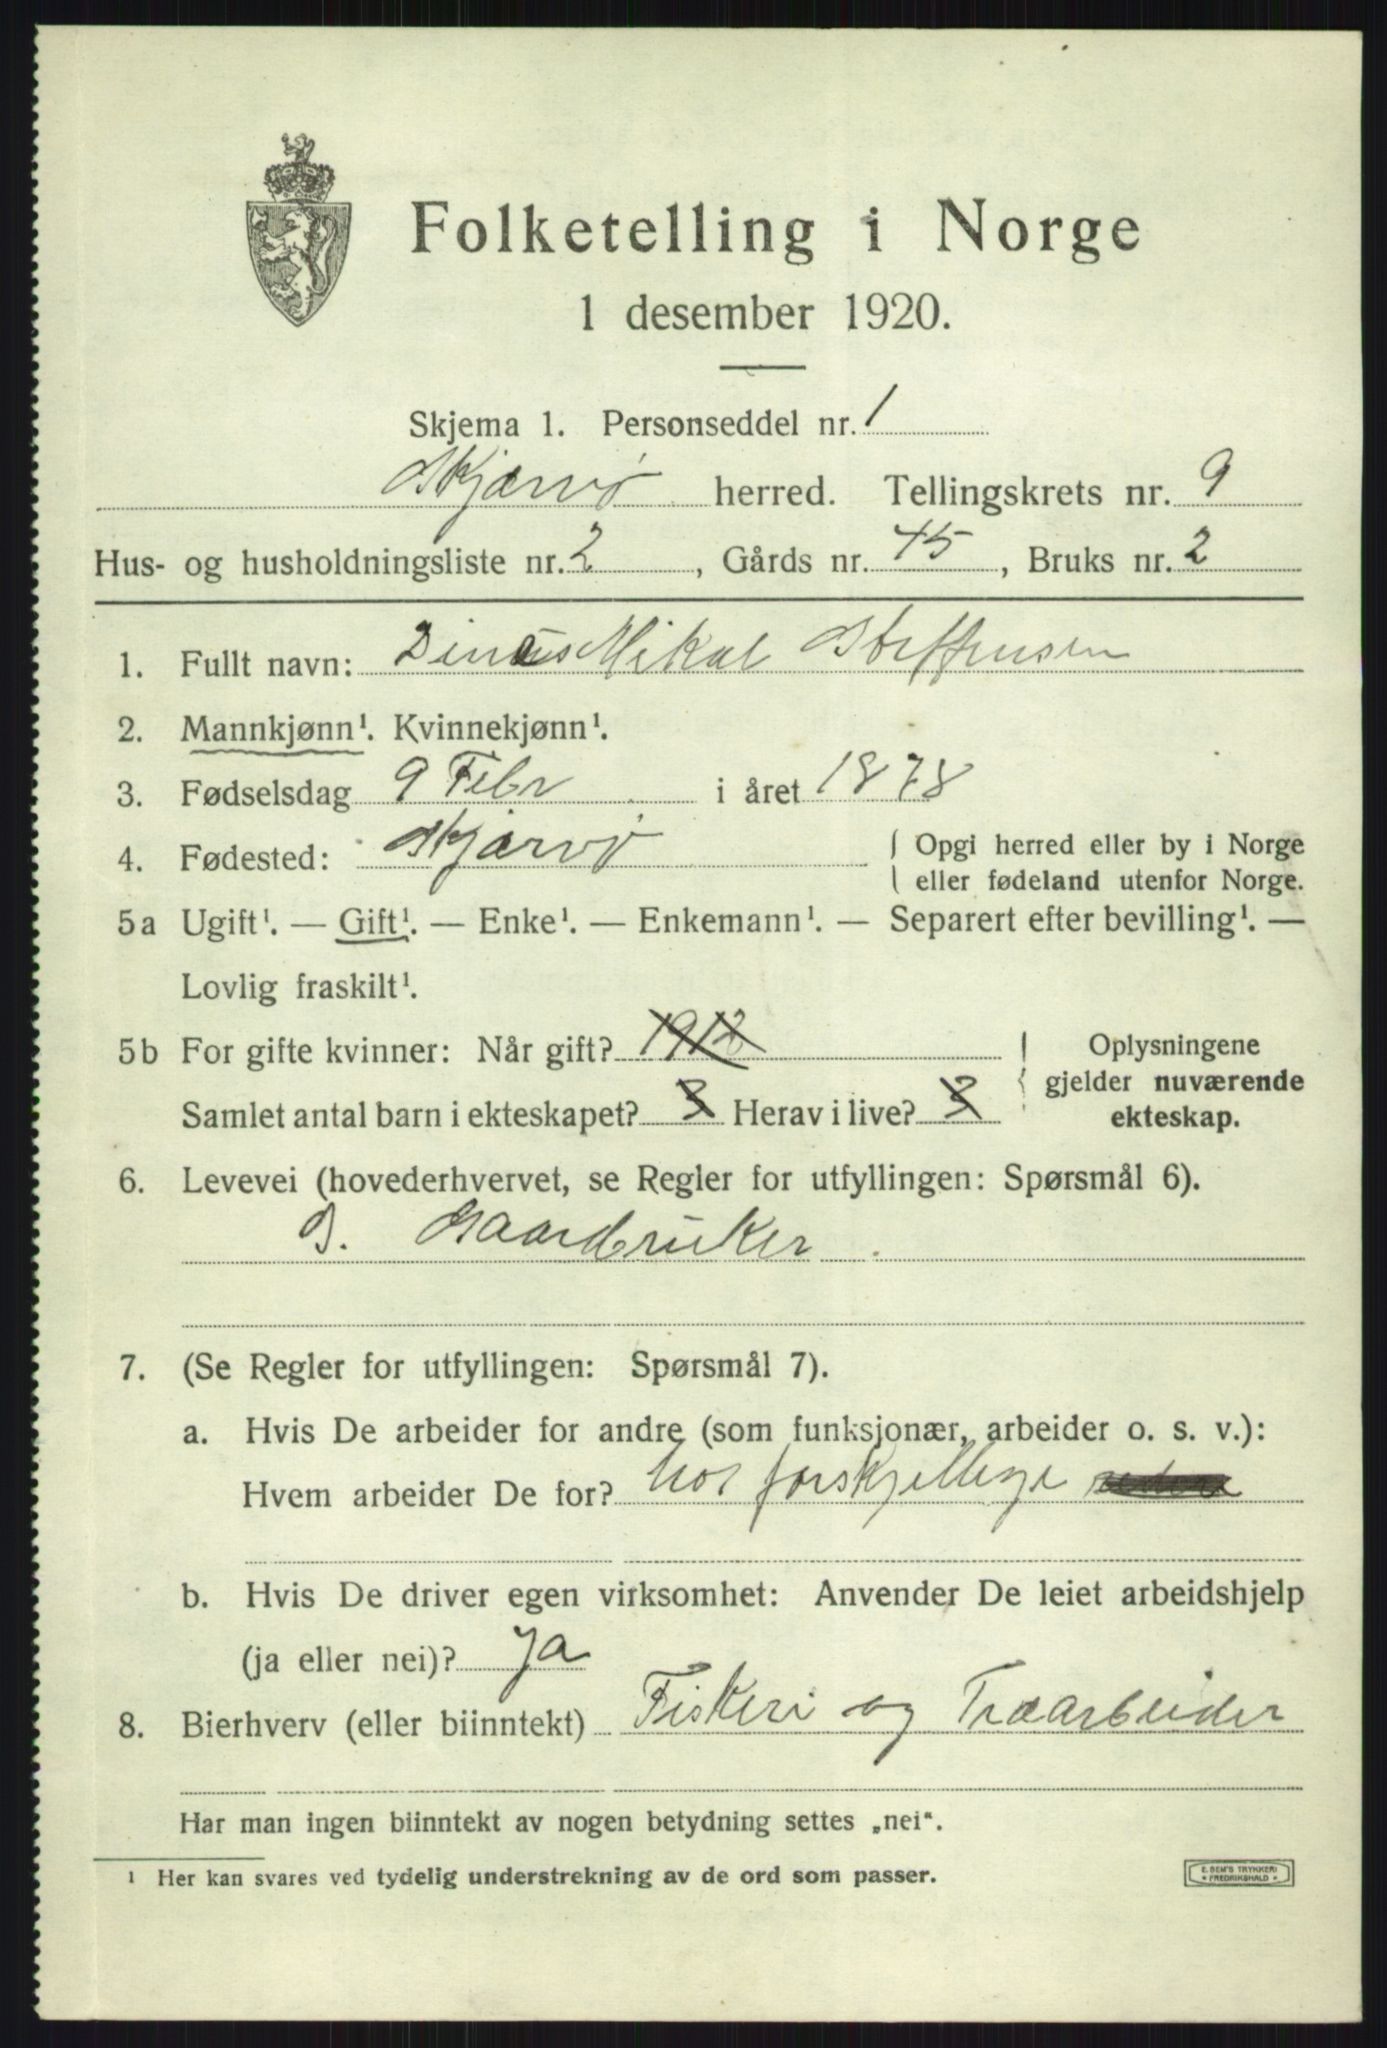 Folketelling i Norge
1 desember 1920.
Skjema 1. Personseddel nr. 1
Skjærvø herred. Tellingskrets nr. 9
Hus- og husholdningsliste nr. 2, Gårds nr. 45, Bruks nr. 2
1. Fullt navn: Mikal Steffensen
2. Mannkjønn¹. Kvinnekjønn¹.
3. Fødselsdag 9 Febr i året 1878
4. Fødested: Skjærvø { Opgi herred eller by i Norge
eller fødeland utenfor Norge.
5a Ugift¹. — Gift¹. — Enke¹. — Enkemann¹. — Separert efter bevilling¹. —
Lovlig fraskilt¹.
5b For gifte kvinner: Når gift? 1912
Samlet antal barn i ekteskapet? 3 Herav i live? 3
Oplysningene
gjelder nuværende
ekteskap.
6. Levevei (hovederhvervet, se Regler for utfyllingen: Spørsmål 6).
G. Gaardbruker
7. (Se Regler for utfyllingen: Spørsmål 7).
a. Hvis De arbeider for andre (som funksjonær, arbeider o. s. v.):
Hvem arbeider De for? hos forskjellige
b. Hvis De driver egen virksomhet: Anvender De leiet arbeidshjelp
(ja eller nei)? Ja
8. Bierhverv (eller biinntekt) Fiskeri og Træarbeider
Har man ingen biinntekt av nogen betydning settes „nei“.
¹ Her kan svares ved tydelig understrekning av de ord som passer.
E. SEM'S TRYKKERI
FREDRIKSHALD